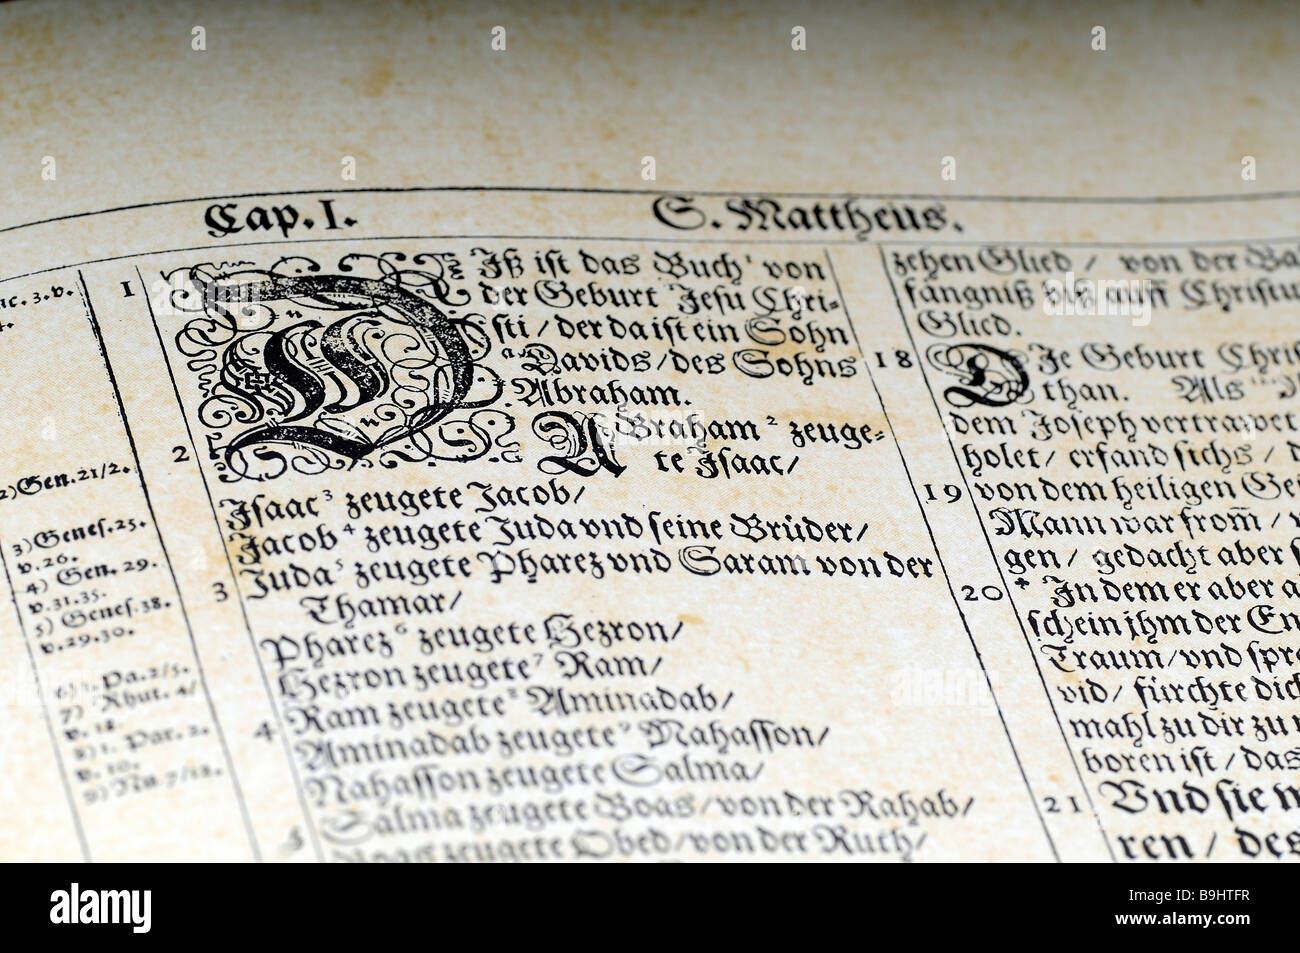 Cap. I.
S. Mattheus.
1
DIß ist das Buch¹ von
der Geburt Jesu Chri-
sti / der da ist ein Sohn
ᵃDavids / des Sohns
Abraham.
2
ABraham² zeuge-
te Isaac /
Isaac³ zeugete Jacob /
Jacob⁴ zeugete Juda vnd seine Brüder /
3 Juda⁵ zeugete Pharez vnd Saram von der
Thamar /
Pharez⁶ zeugete Hezron /
Hezron zeugete⁷ Ram /
4 Ram zeugete⁸ Aminadab /
Aminadab zeugete⁹ Nahasson /
Nahasson zeugete Salma /
5 Salma zeugete Boas / von der Rahab /
Boas zeugete Obed / von der Ruth /
3. v.
2) Gen. 21/2.
3) Genes. 25.
v. 26.
4) Gen. 29.
v. 31. 35.
5) Genes. 38.
v. 29. 30.
6) 1. Pa. 2/5.
7) Rhut. 4/
v. 18.
8) 1. Par. 2.
v. 10.
9) Nu. 7/12.
zehen Glied / von der Ba
fängniß biß auff Christu
Glied.
18 DIe Geburt Chris
than. Als
dem Joseph vertrawet
holet / erfand sichs /
19 von dem heiligen Gei
Mann war from̃ / v
gen / gedacht aber
20 In dem er aber a
schein jhm der En
Traum / vnd spra
vid / fürchte dich
mahl zu dir zu n
boren ist / das
21 Vnd sie w
ren / des
alamy
Image ID: B9HTFR
www.alamy.com